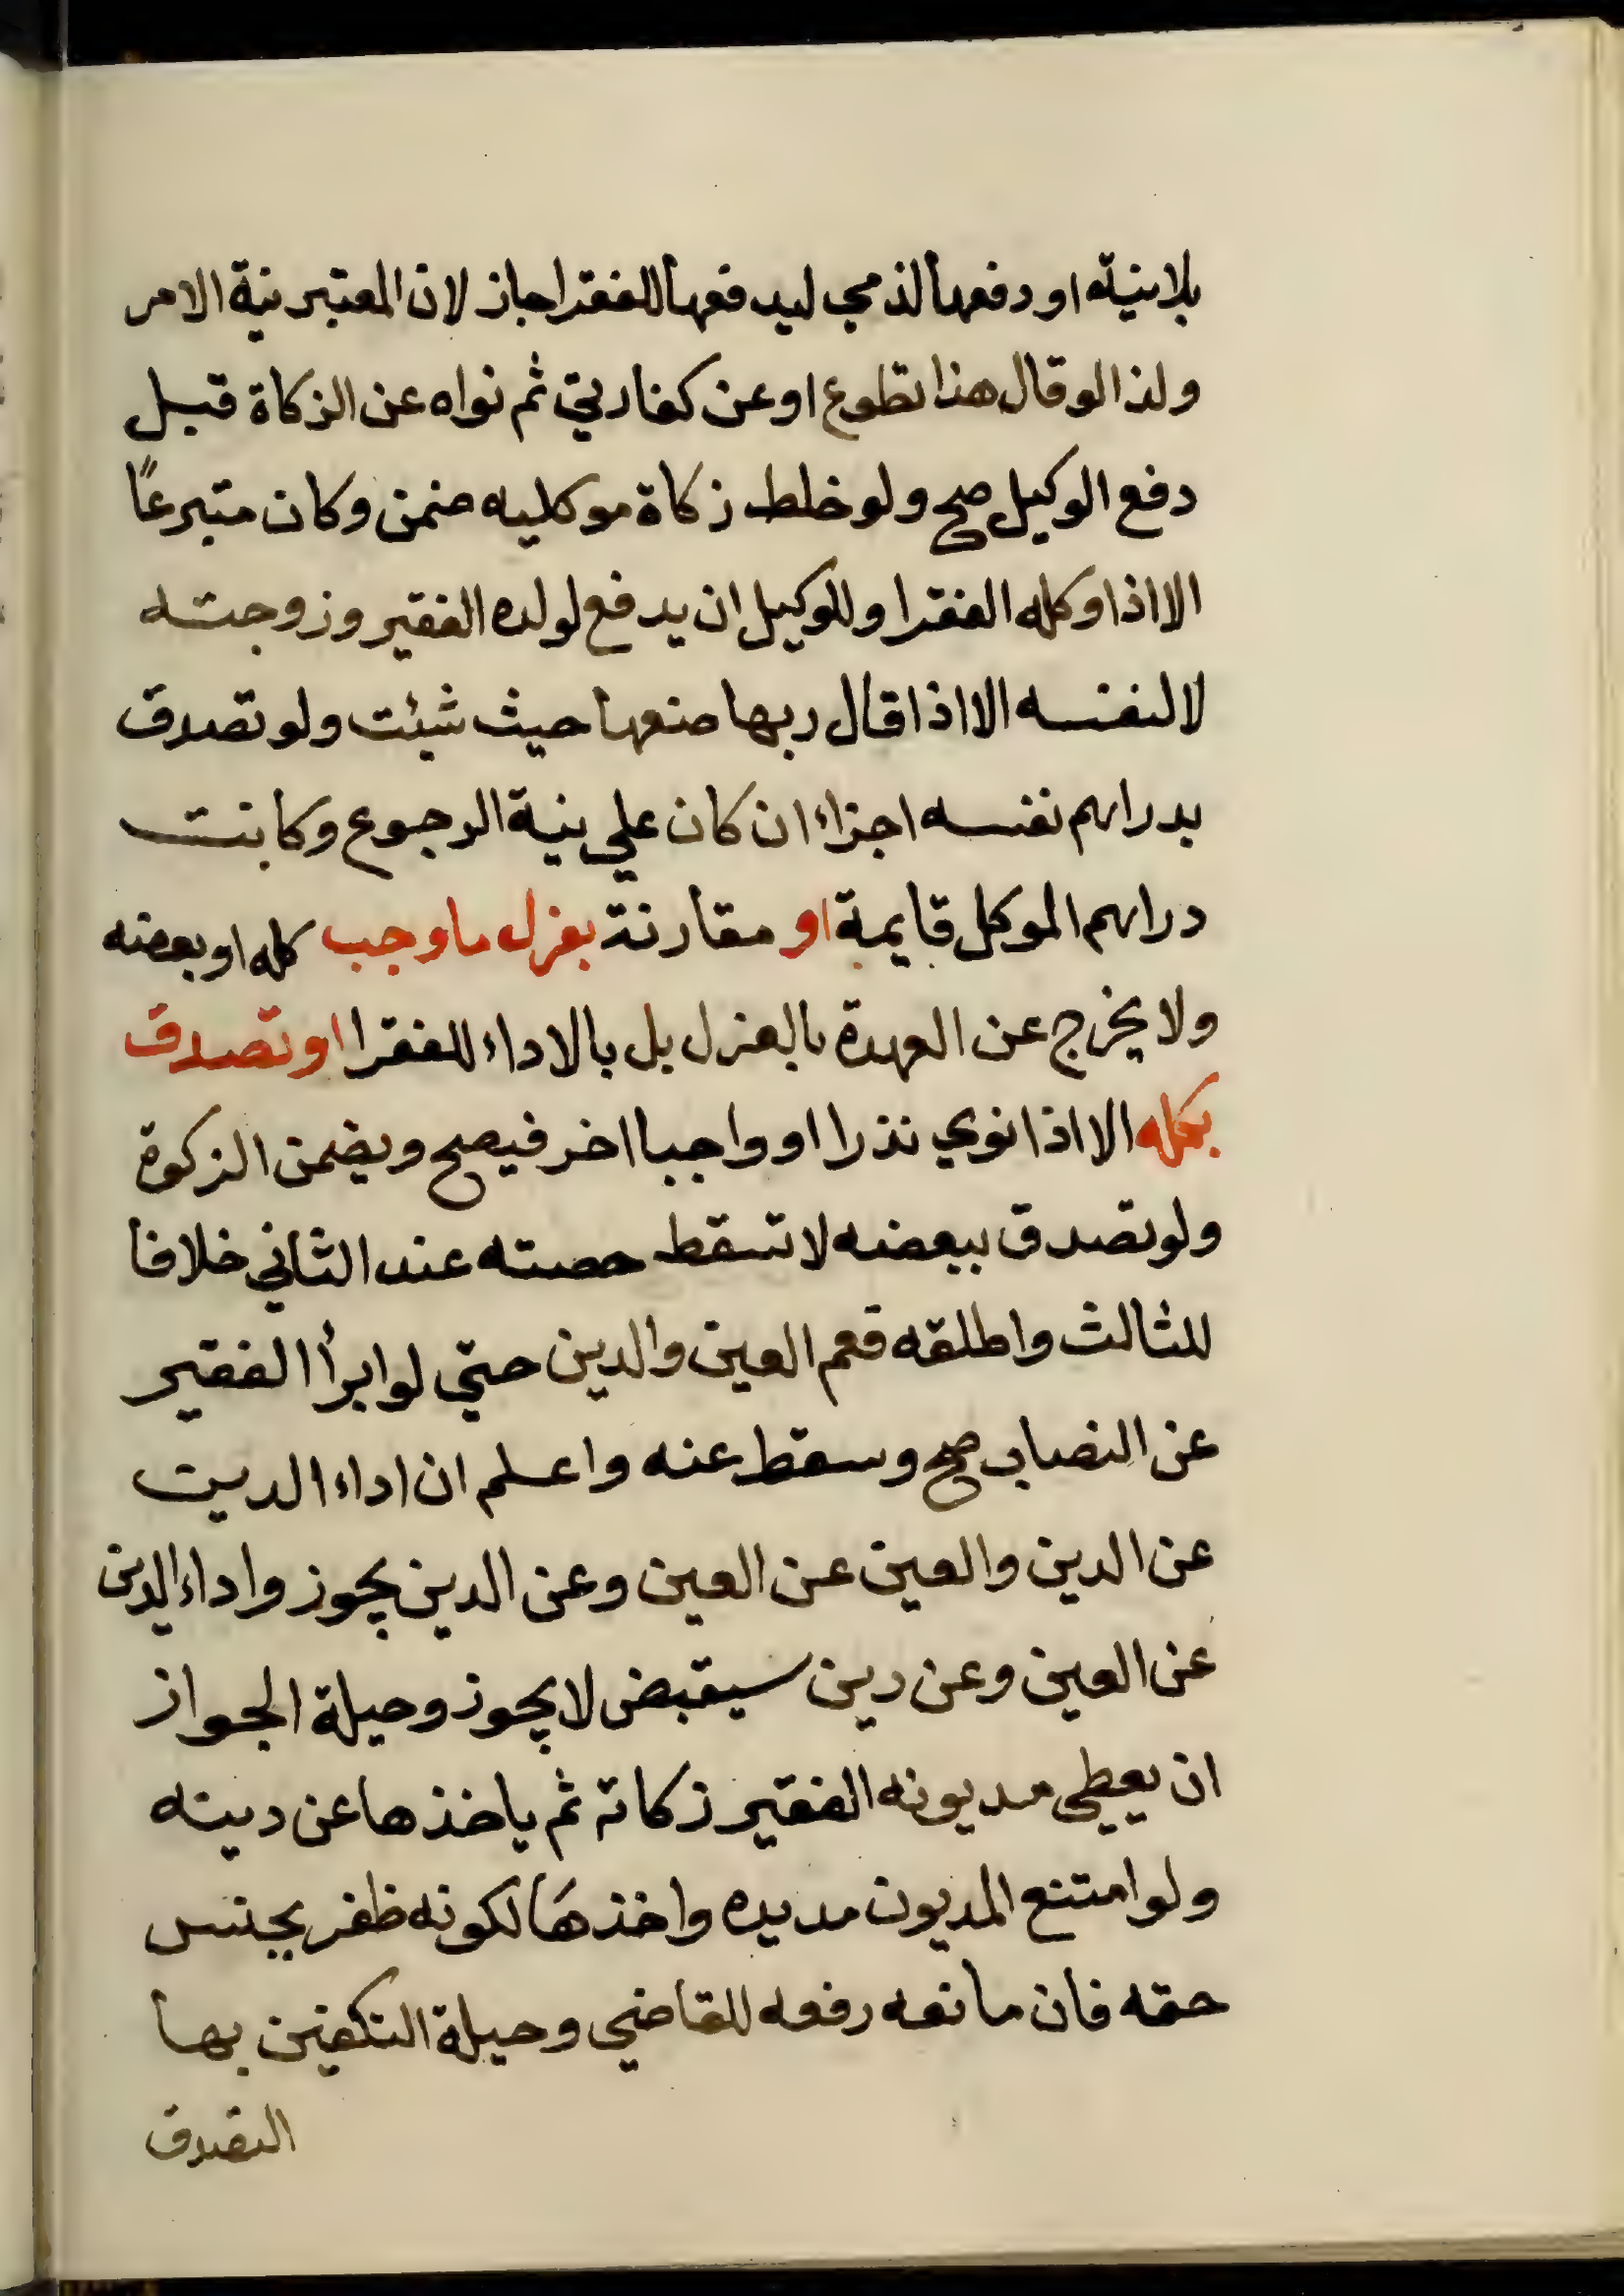 بلانية او دفعها لذمي ليدفعها للفقرا جاز لان المعتبر نية الامر
ولذا لو قال هذا تطوع او عن كفارتي ثم نواه عن الزكاة قبل
دفع الوكيل صح ولو خلط زكاة موكليه ضمن وكان متبرعًا
الا اذا وكله الفقرا وللوكيل ان يدفع لولده الفقير وزوجته
لا لنفسه الا اذا قال ربها ضعها حيث شئت ولو تصدق
بدراهم نفسه اجزاء ان كان علي نية الرجوع وكانت
دراهم الموكل قايمة او مقارنة بعزل ما وجب كله او بعضه
ولا يخرج عن العهدة بالعزل بل بالاداء للفقرا او تصدق
بكله الا اذا نوي نذرا او واجبا اخر فيصح ويضمن الزكوة
ولو تصدق ببعضه لا تسقط حصته عند الثاني خلافا
للثالث واطلقه فعم العين والدين حتي لو ابرأ الفقير
عن النصاب صح وسقط عنه واعلم ان اداء الدين
عن الدين والعين عن العين وعن الدين يجوز واداء الدين
عن العين وعن دين سيقبض لا يجوز وحيلة الجواز
ان يعطي مديونه الفقير زكاته ثم ياخذها عن دينه
ولو امتنع المديون مد يده واخذهَا لكونه ظفر بجنس
حقه فان مانعه رفعه للقاضي وحيلة التكفين بها
التصدق